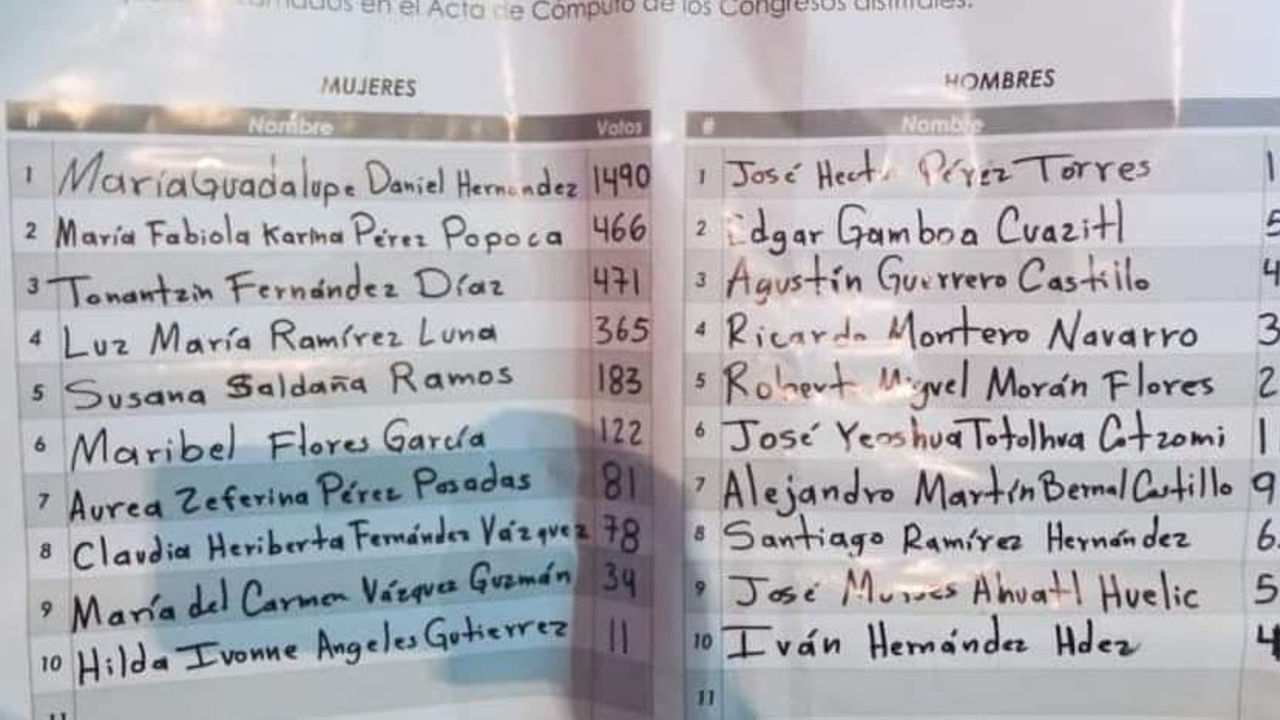 en el Acta de Cómputo de los Congresos distritales.
MUJERES
# Nombre Votos
1 María Guadalupe Daniel Hernandez 1490
2 María Fabiola Karina Pérez Popoca 466
3 Tonantzin Fernández Díaz 471
4 Luz María Ramírez Luna 365
5 Susana Saldaña Ramos 183
6 Maribel Flores García 122
7 Aurea Zeferina Pérez Posadas 81
8 Claudia Heriberta Fernández Vázquez 78
9 María del Carmen Vázquez Guzmán 34
10 Hilda Ivonne Angeles Gutierrez 11
11
HOMBRES
# Nombre
1 José Pérez Torres 1
2 Edgar Gamboa Cuazitl 5
3 Agustín Guerrero Castillo 4
4 Ricardo Montero Navarro 3
5 Robert Miguel Morán Flores 2
6 José Yeoshua Totolhua Cotzomi 1
7 Alejandro Martín Bernal Castillo 9
8 Santiago Ramírez Hernández 6
9 José Ahuatl Huelic 5
10 Iván Hernández Hdez 4
11